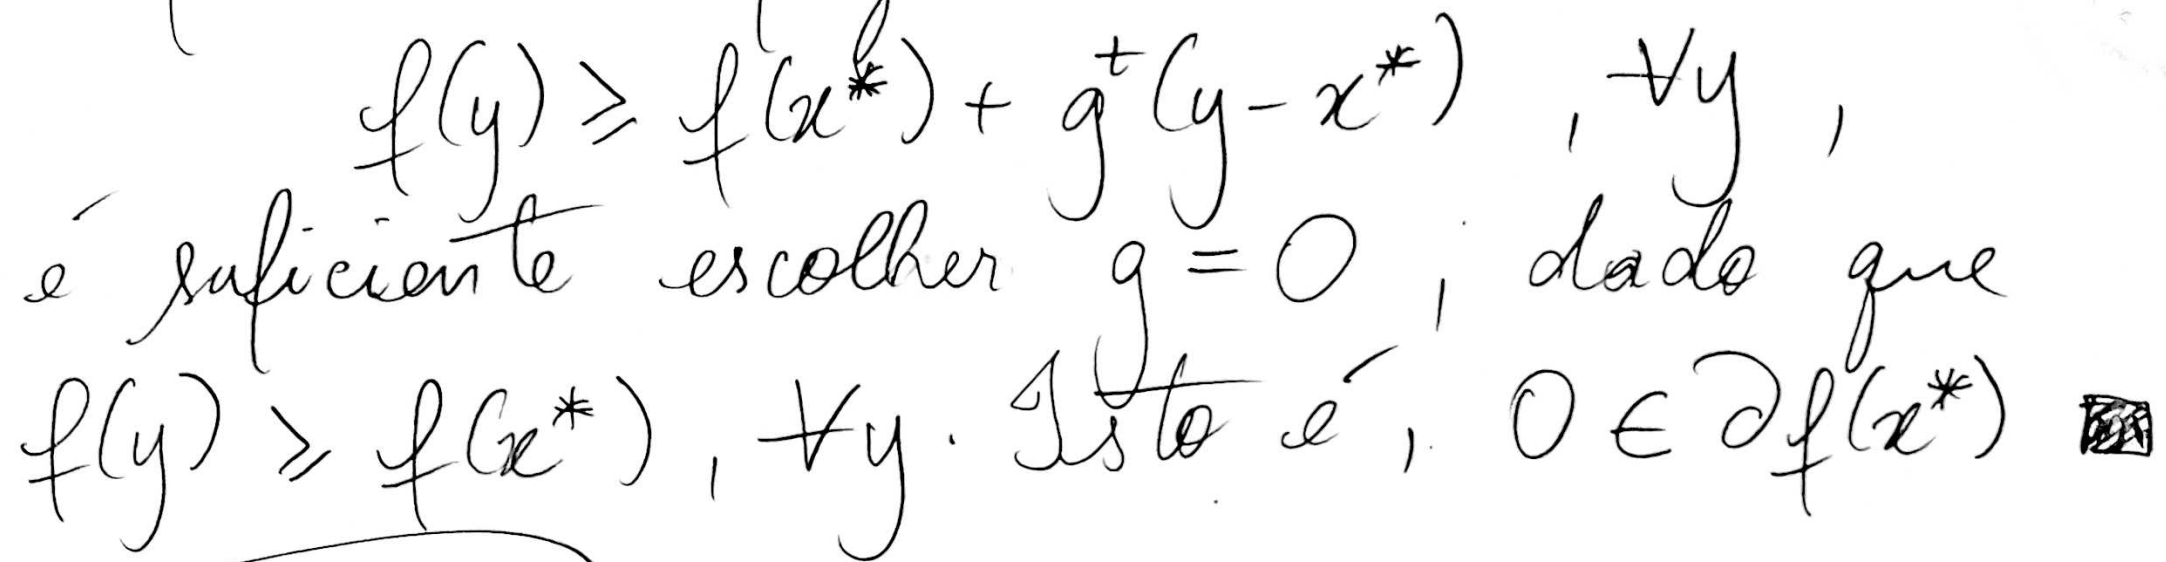 f(y) ≥ f(x*) + gᵗ(y - x*) , ∀y ,
é suficiente escolher g = 0 , dado que
f(y) ≥ f(x*) , ∀y . Isto é , 0 ∈ ∂f(x*) ■